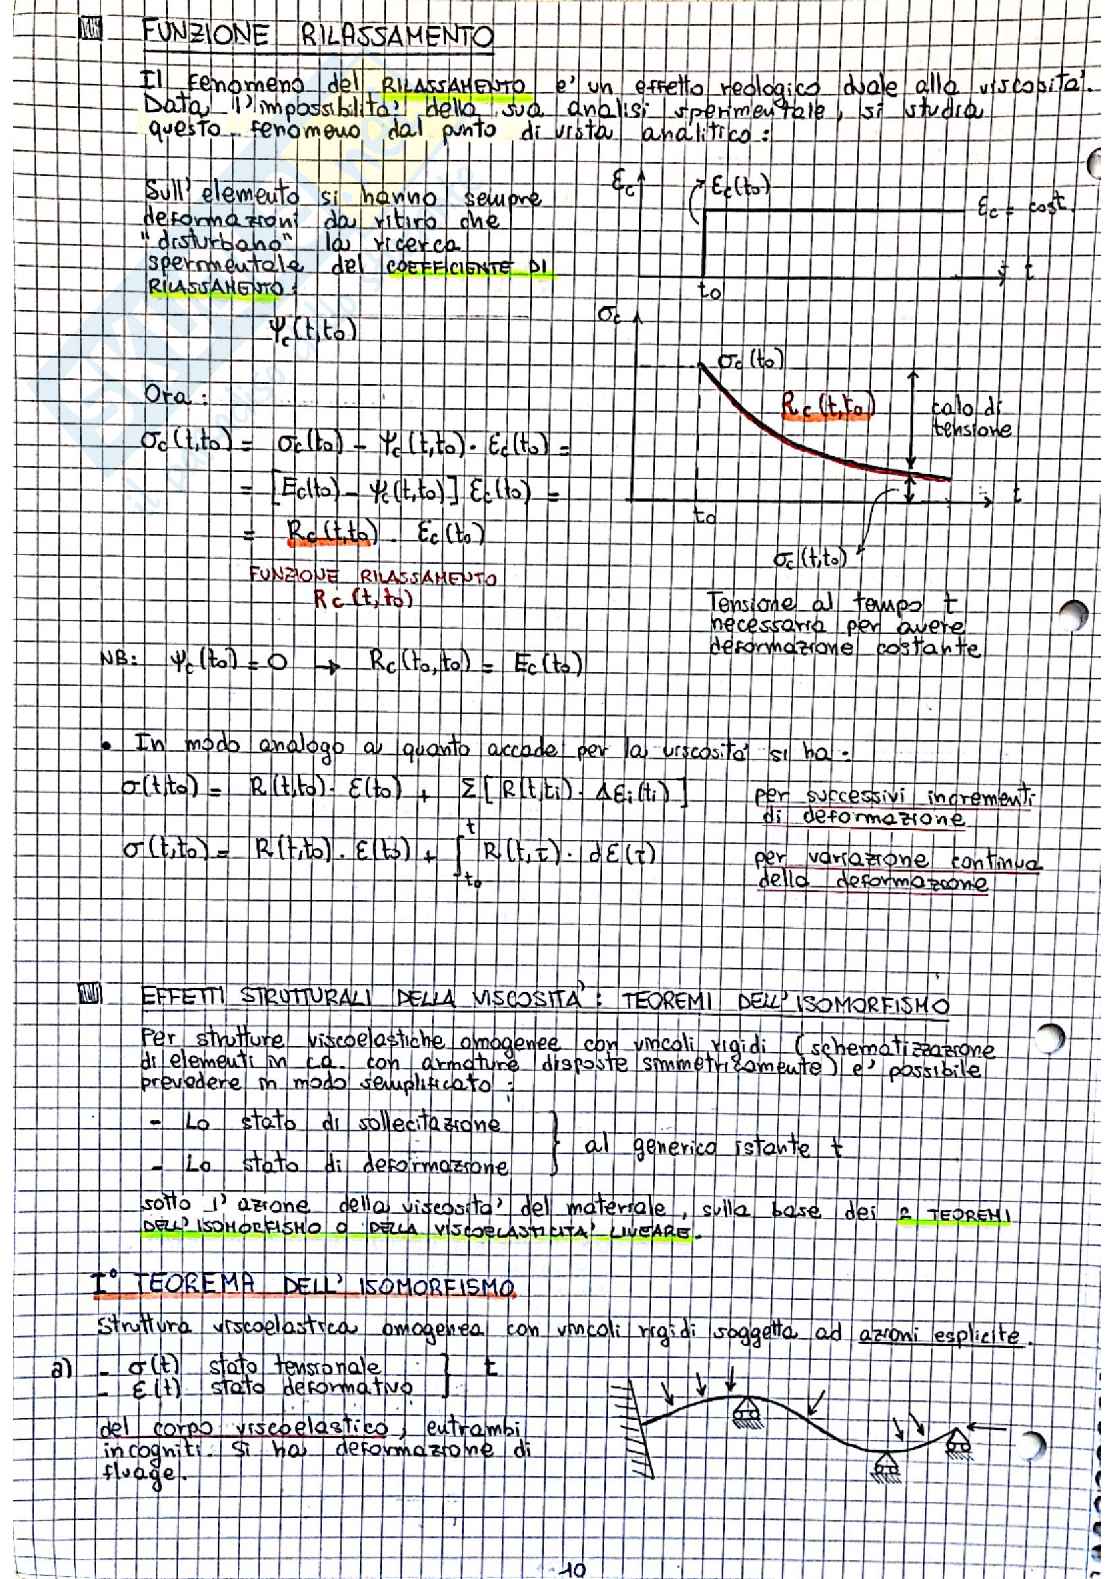 FUNZIONE RILASSAMENTO
Il fenomeno del RILASSAMENTO e' un effetto reologico duale alla viscosita'.
Data l'impossibilita' della sua analisi sperimentale, si studia
questo fenomeno dal punto di vista analitico:
Sull' elemento si hanno sempre
deformazioni da ritiro che
"disturbano" la ricerca
sperimentale del COEFFICIENTE DI
RILASSAMENTO:
Ψc(t,to)
εc
εc(to)
εc = cost.
to
t
σc
σc(to)
Rc(t,to)
calo di
tensione
to
t
σc(t,to)
Tensione al tempo t
necessaria per avere
deformazione costante
Ora:
σc(t,to) = σc(to) - Ψc(t,to) · εc(to) =
= [Ec(to) - Ψc(t,to)] εc(to) =
= Rc(t,to) · εc(to)
FUNZIONE RILASSAMENTO
Rc(t,to)
NB: Ψc(to) = 0 → Rc(to,to) = Ec(to)
• In modo analogo a quanto accade per la viscosita' si ha:
σ(t,to) = R(t,to) · ε(to) + Σ[R(t,ti) · Δεi(ti)] per successivi incrementi
di deformazione
σ(t,to) = R(t,to) · ε(to) + ∫ₜₒᵗ R(t,τ) · dε(τ) per variazione continua
della deformazione
EFFETTI STRUTTURALI DELLA VISCOSITA': TEOREMI DELL'ISOMORFISMO
Per strutture viscoelastiche omogenee con vincoli rigidi (schematizzazione
di elementi in c.a. con armature disposte simmetricamente) e' possibile
prevedere in modo semplificato:
- Lo stato di sollecitazione
- Lo stato di deformazione
} al generico istante t
sotto l'azione della viscosita' del materiale, sulla base dei 2 TEOREMI
DELL'ISOMORFISMO O DELLA VISCOELASTICITA' LINEARE.
I° TEOREMA DELL'ISOMORFISMO
Struttura viscoelastica omogenea con vincoli rigidi soggetta ad azioni esplicite.
a) - σ(t) stato tensionale
- ε(t) stato deformativo
} t
del corpo viscoelastico, entrambi
incogniti. Si ha deformazione di
fluage.
10